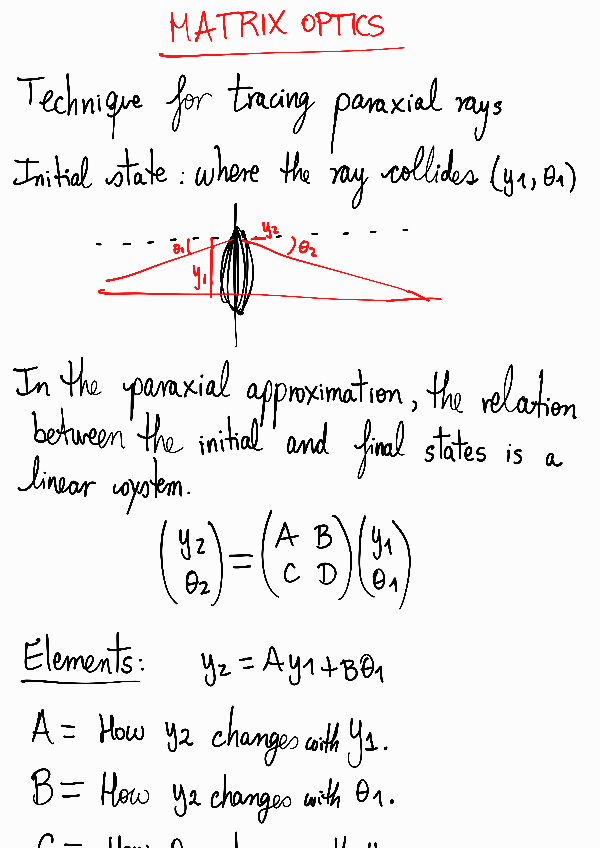 MATRIX OPTICS
Technique for tracing paraxial rays
Initial state: where the ray collides (y1, θ1)
θ1 y1 y2 θ2
In the paraxial approximation, the relation
between the initial and final states is a
linear system.
(y2 θ2) = (A B C D) (y1 θ1)
Elements: y2 = Ay1 + Bθ1
A = How y2 changes with y1.
B = How y2 changes with θ1.